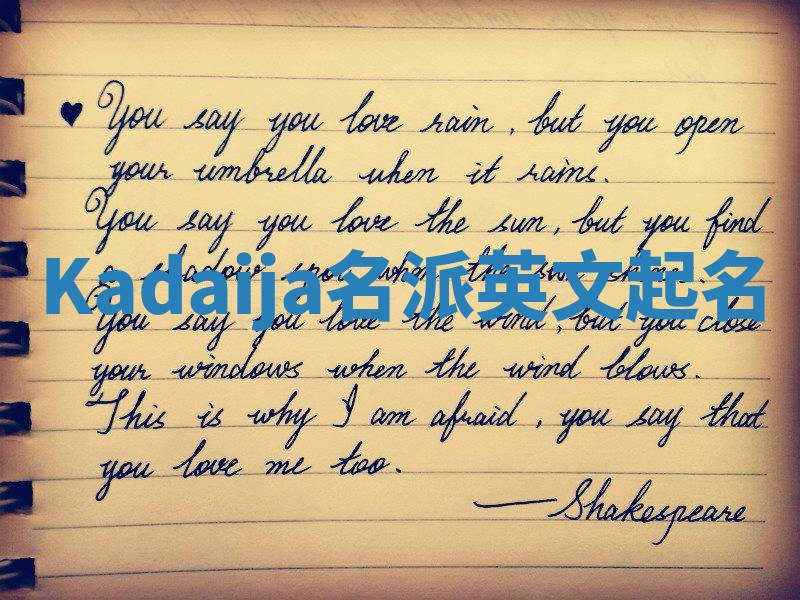 ♥ You say you love rain, but you open
your umbrella when it rains.
You say you love the sun, but you find
a shadow spot when the sun shines.
Kadaija名派英文起名
You say you love the wind, but you close
your windows when the wind blows.
This is why I am afraid, you say that
you love me too.
—Shakespeare